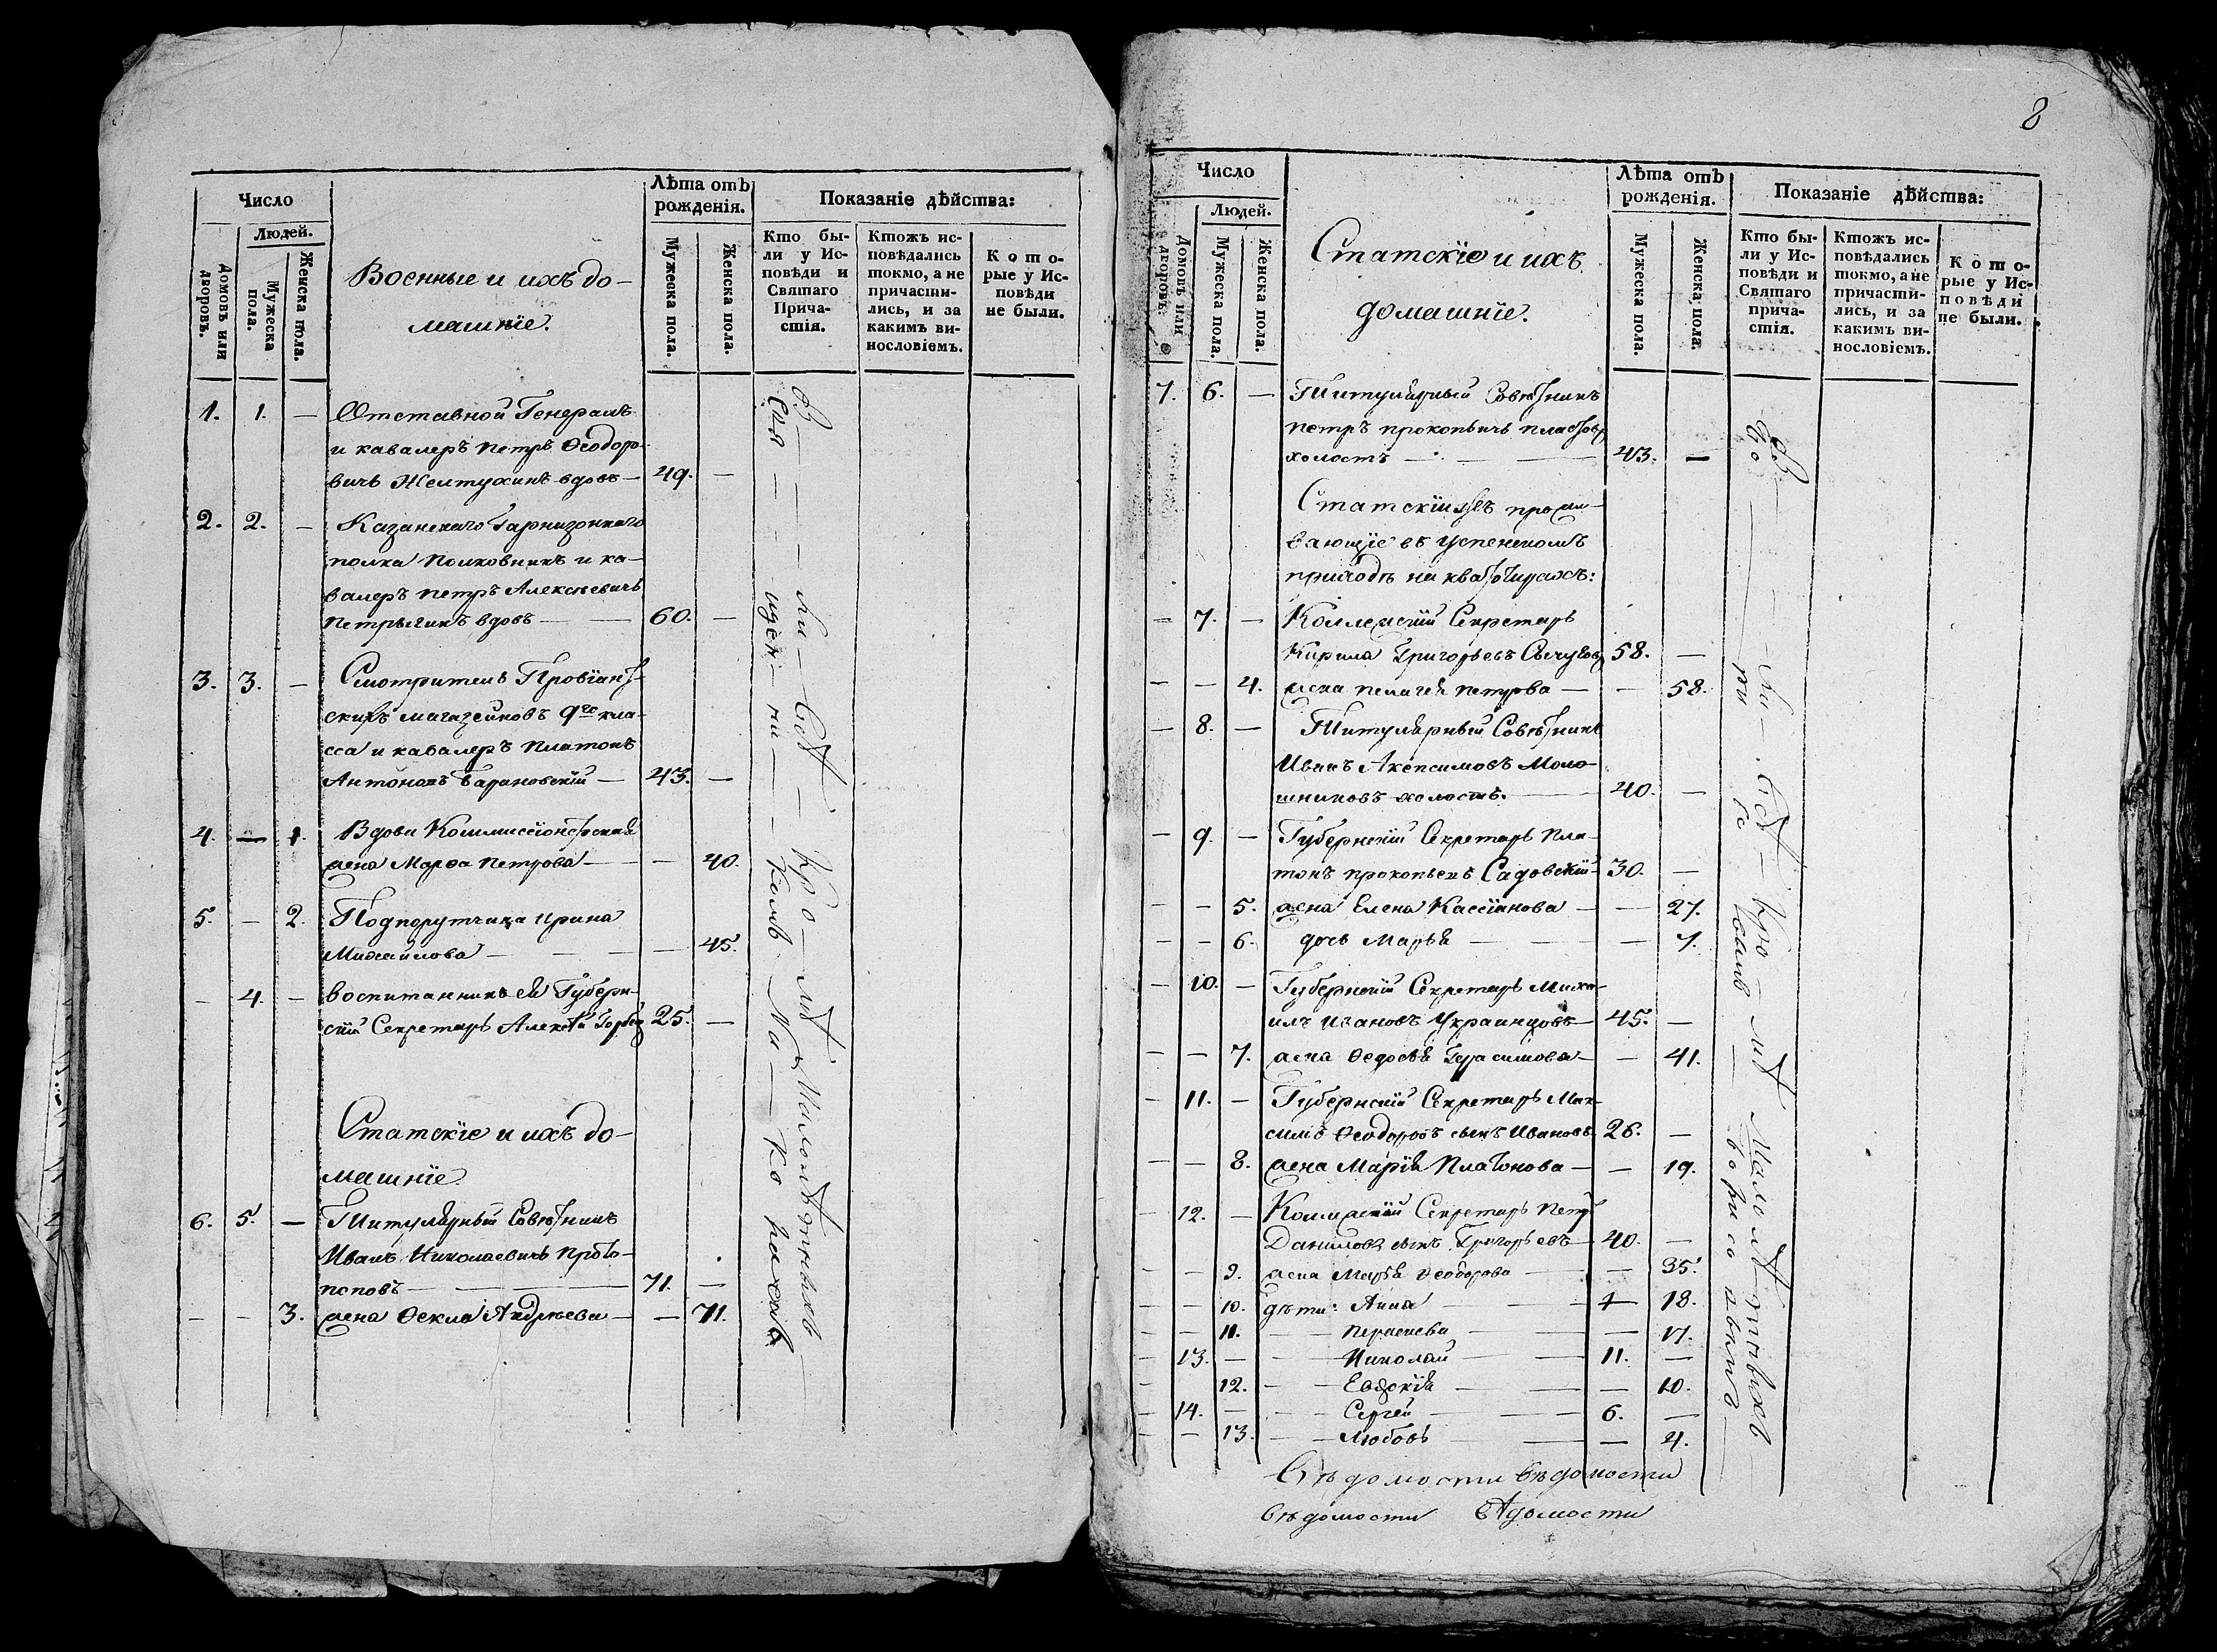 Число
Людей.
Домовъ или дворовъ.
Мужеска пола.
Женска пола.
Военные и ихъ до-
машніе.
Лѣта отъ
рожденія.
Мужеска пола.
Женска пола.
Показаніе дѣйства:
Кто бы-
ли у Ис-
повѣди и
Святаго
Прича-
стія.
Ктожъ ис-
повѣдались
токмо, а не
причасти-
лись, и за
какимъ ви-
нословіемъ.
Кото-
рые у Ис-
повѣди
не были.
1. 1. — Отставной Генералъ
и кавалеръ Петръ Ѳеодоро-
вичь Желтухинъ вдовъ — 49. —
2. 2. — Казанскаго Гарнизоннаго
полка Полковникъ и ка-
валеръ Петръ Алексѣевичь
вдовъ — 60. —
3. 3. — Смотритель Провіант-
скихъ магазейновъ 9го кла-
сса и кавалеръ Платонъ
Антоновъ Барановскій — 43. —
4. — 1. Вдова Коммиссіонерская
жена Марѳа Петрова — — 40.
5. — 2. Подпорутчица Ирина
Михайлова — — 45.
— 4. — воспитанникъ ея Губерн-
скій Секретарь Алексѣй 25. —
Статскіе и ихъ до-
машніе
6. 5. — Титулярный Совѣтникъ
Иванъ Николаевичь Прото-
поповъ — 71. —
— — 3. жена Ѳекла Андреева — — 71.
Всѣ — ли — сіѣ — кро — мѣ Малолѣтныхъ —
8
Число
Людей.
Домовъ или дворовъ.
Мужеска пола.
Женска пола.
Статскіе и ихъ
домашніе.
Лѣта отъ
рожденія.
Мужеска пола.
Женска пола.
Показаніе дѣйства:
Кто бы-
ли у Ис-
повѣди и
Святаго
прича-
стія.
Ктожъ ис-
повѣдались
токмо, а не
причасти-
лись, и за
какимъ ви-
нословіемъ.
Кото-
рые у Ис-
повѣди
не были.
7. 6. — Титулярный Совѣтникъ
Петръ Прокопьичь
холостъ — 43. —
Статскіижъ прожи-
вающіе въ Успенскомъ
приходѣ на квартирахъ:
— 7. — Коллежскій Секретарь
Кирила Григорьевъ 58. —
— — 4. жена Пелагея Петрова — — 58.
— 8. — Титулярный Совѣтникъ
Иванъ Акепсимовъ Моло-
шниковъ холостъ. 40. —
— 9. — Губернскій Секретарь Пла-
тонъ Прокопьевъ Садовскій 30. —
— — 5. жена Елена Кассіанова — — 27.
— — 6. дочь Марья — — 7.
— 10. — Губернскій Секретарь Миха-
илъ Ивановъ Украинцовъ — 45. —
— — 7. жена Ѳедосья Герасимова — — 41.
— 11. — Губернскій Секретарь Мак-
симъ Ѳеодоровъ сынъ Ивановъ 26. —
— — 8. жена Марія Платонова — — 19.
— 12. — Коллежскій Секретарь Петръ
Даниловъ сынъ Григорьевъ — 40. —
— — 9. жена Марья Ѳеодорова — — 35.
— — 10. дѣти: Анна — — 18.
— — 11. — — Парасковья — — 17.
— 13. — — — Николай — 11. —
12. — — Евдокія — — 10.
— 14. — — — Сергей — 6. —
— — 13. — — Любовь — — 4.
Всѣ — ли — сіѣ — кро — мѣ Малолѣтныхъ
Вѣдомости вѣдомости
вѣдомости вѣдомости